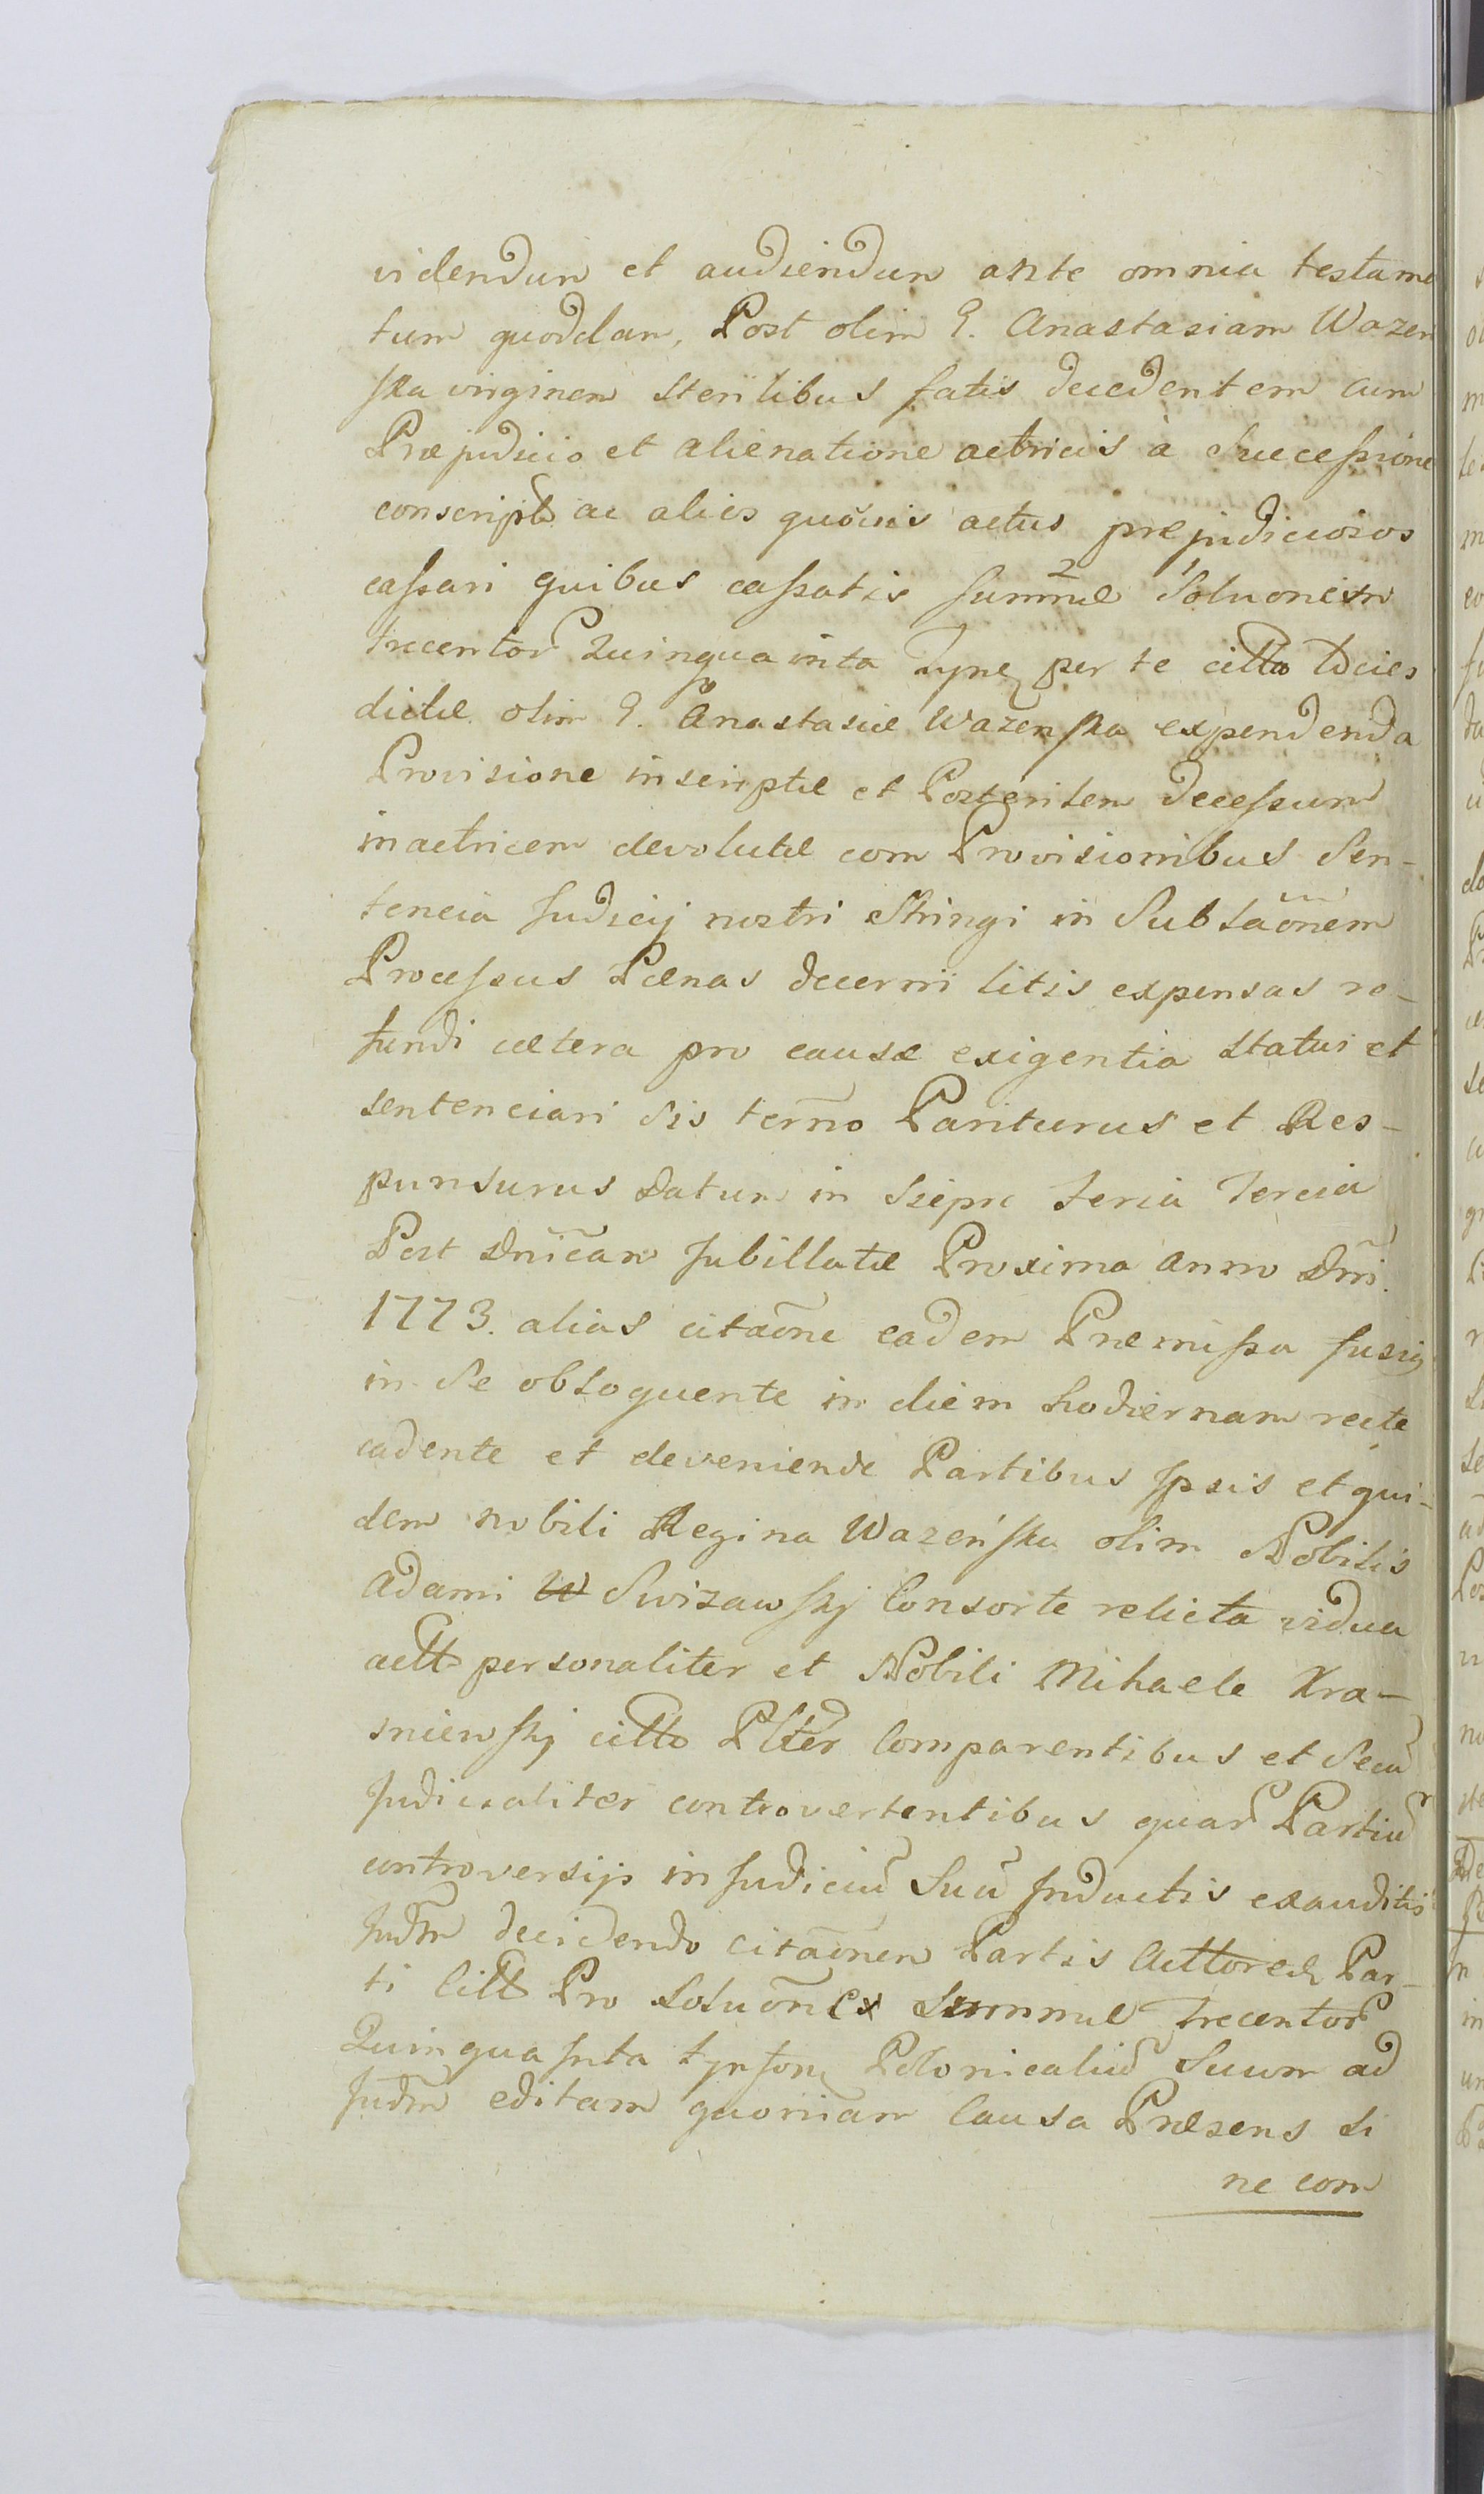 videndum et audiendum ante omnia testame
tum quoddam, Post olim G. Anastasiam Wazen
ska virginem sterilibus fatis decedentem cum
Præjudicio et alienatione actricis à Successione
conscript ac alios quosvis actus præjudiciosos
cassari quibus cassatis Summæ Soluonem
trecentor Quinquainta Tynf per te citto
dictæ olim G. Anastasiæ Wazenska expendenda
Provisione inscriptæ et Posteritem decessum
in actricem devolutæ com Provisionibus Sen-
tencia Judicij nostri Stringi in Subtaõnem
Processus Pænas decerni litis expensas re-
fundi cætera pro causæ exigentia statui et
sentenciari sis termo Pariturus et Res-
punsurus Datum in Siepre Feria Tercia
Post Dnicam Jubillatæ Proxima Anno Dni.
1773. alias citaõne eadem Præmissa fusiq
in se obloquente in diem hodiernam recte
cadente et deveniende Partibus Ipsis et qui-
dem nobili Regina Wazeńska olim Nobilis
Adami W Swizawskj Consorte relicta vidua
actt personaliter et Nobili Mihaele Kra-
sniewskj citto Plter Comparentibus et Secũ
Judicialiter controvertentibus quar Partiũ
controversijs in Judiciũ Suũ Inductis exauditis
Judm decidendo citaõnem Partis Par-
ti Citt Pro Soluõne Summæ Trecentor
Quinquainta tynfon Polonicaliũ Suum ad
Judm editam quoniam Causa Præsens si
ne com